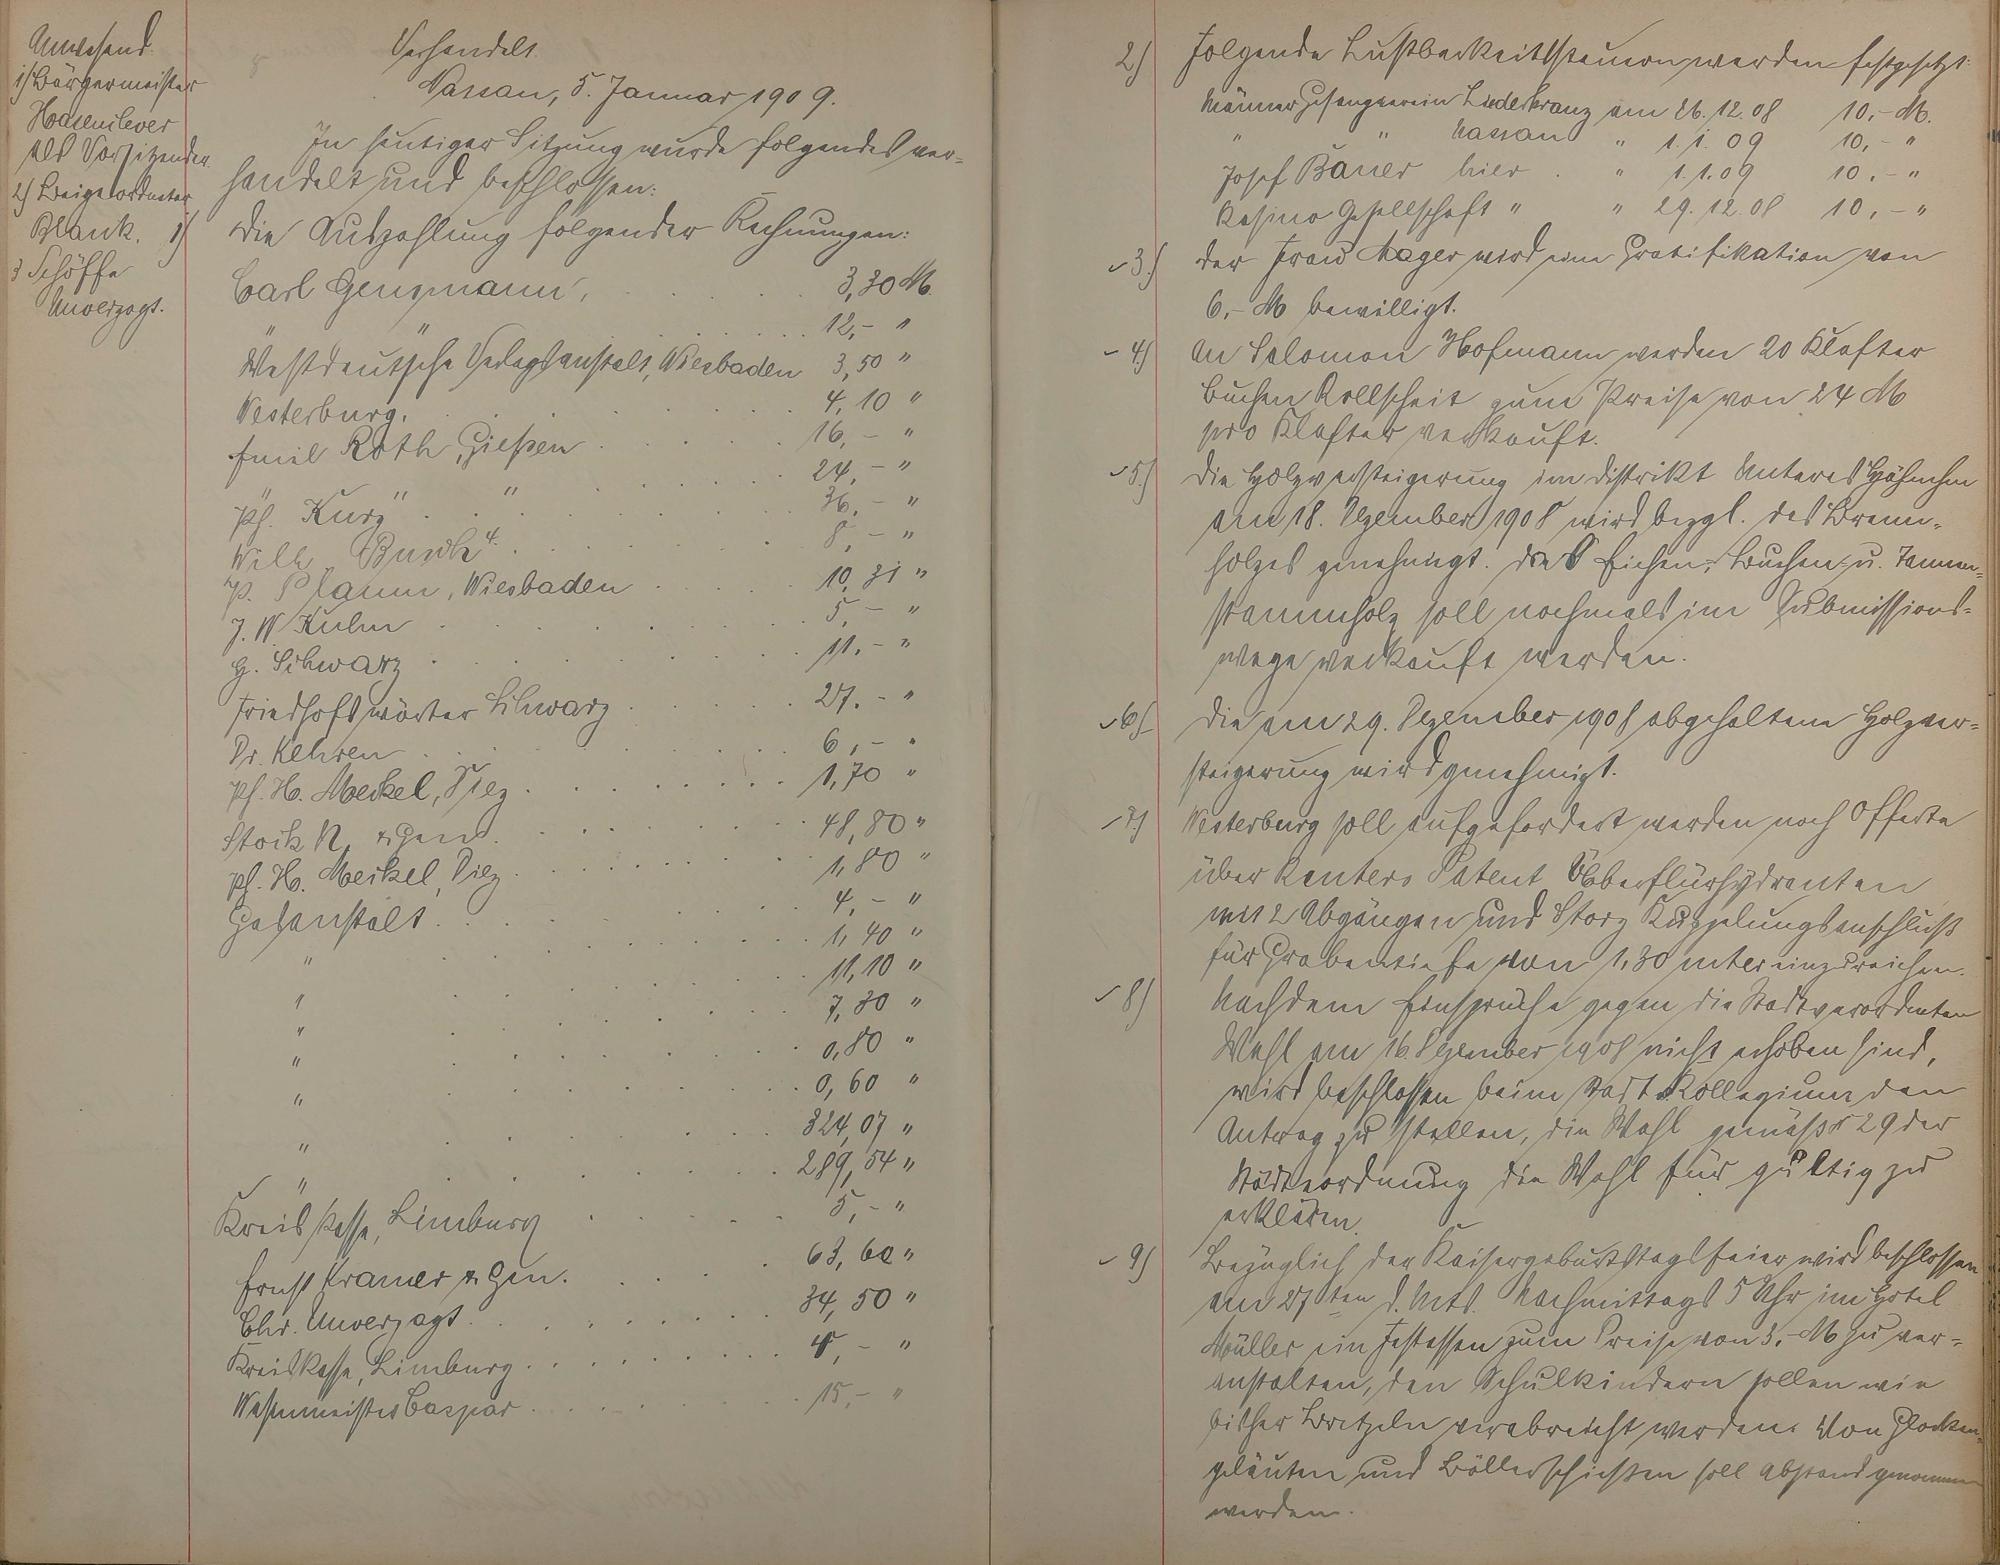 Anwesend
1) Bürgermeister
Hasenclever
als Vorsitzender
2) Beigeordneter
Blank.
3 Schöffe
Unverzagt.
Verhandelt.
Nassau, 5. Januar 1909.
In heutiger Sitzung wurde folgendes ver=
handelt und beschlossen:
1) Die Auszahlung folgender Rechnungen:
Carl 3,30 M.
" " 12,- "
Westdeutsche Verlagsanstalt, Wiesbaden 3,50 "
Westerburg. 4,10 "
Emil Roth, Gießen 16,- "
" " 24,- "
Ph. Kurz 36,- "
Wilh. Busch 4. 8,- "
P. Plaum, Wiesbaden 10,31 "
J. W. Kuhn 5,- "
G. Schwarz 11.- "
Friedhofswärter Schwarz 27.- "
Dr. Kehren 6,- "
Ph. H. Meckel, Diez 1,70 "
Stock N. & Gen. 48,80 "
Ph. H. Meckel, Diez 1,80 "
Gasanstalt 4,- "
" 1,40 "
" 11,10 "
" 7,30 "
" 0,80 "
" 0,60 "
" 324,07 "
" 289,54 "
Kreiskasse, Limburg 5,- "
Ernst Kramer & Gen. 63,60 "
Chr. Unverzagt 34,50 "
Kreiskasse, Limburg ,- "
Wasenmeister Caspar 15,- "
2) Folgende Lustbarkeitssteuern werden festgesetzt:
Männer Gesangverein Liederkranz am 26.12.08 10,- M.
" " Nassau " 1.1.09 10,- "
Josef Bauer hier " 1.1.09 10.- "
Kasino Gesellschaft " " 29.12.08 10,- "
3.) Der Frau Mager wird eine Gratifikation von
6,- M bewilligt.
4) An Salomon Hofmann werden 20 Klafter
Buchen Rollscheit zum Preise von 24 M
pro Klafter verkauft.
5.) Die Holzversteigerung im Distrikt Unteres Höhnchen
am 18. Dezember 1908 wird bezgl. des Brenn=
holzes genehmigt. Das Eichen, Buchen- u. Tannen=
stammholz soll nochmals im Submissions=
wege verkauft werden.
6) Die am 29. Dezember 1908 abgehaltene Holzver=
steigerung wird genehmigt.
7.) Westerburg soll aufgefordert werden noch Offerte
über Reuters Patent Überflurhydranten
mit 2 Abgängen und Storz Kuppelungsanschluß
für Grabentiefe von 1,30 mtr einzureichen.
8) Nachdem Einsprüche gegen die Stadtverordneten
Wahl am 16. Dezember 1908 nicht erhoben sind,
wird beschlossen beim Stadt Kollegium den
Antrag zu stellen, die Wahl gemäß § 29 der
Städteordnung die Wahl für gültig zu
erklären.
9) Bezüglich der Kaisergeburtstagsfeier wird beschlossen
am 27ten d. Mts. Nachmittags 5 Uhr im Hotel
Müller ein Festessen zum Preise von 3,- M zu ver=
anstalten, den Schulkindern sollen wie
bisher Bretzeln verabreicht werden. Von Glocken=
geläuten und Böllerschießen soll Abstand genommen
werden.